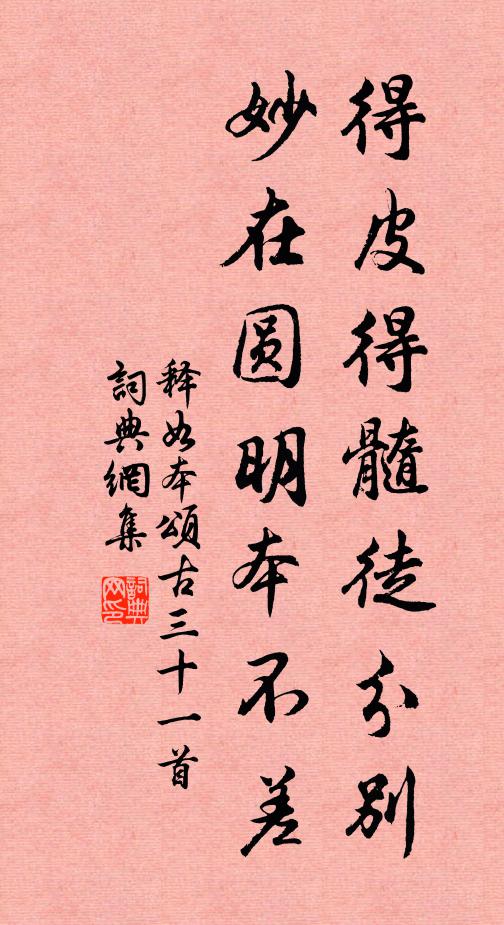 得皮得髓徒分别
妙在圆明本不差
释如本颂古三十一首
詞典網集
詞典
网印